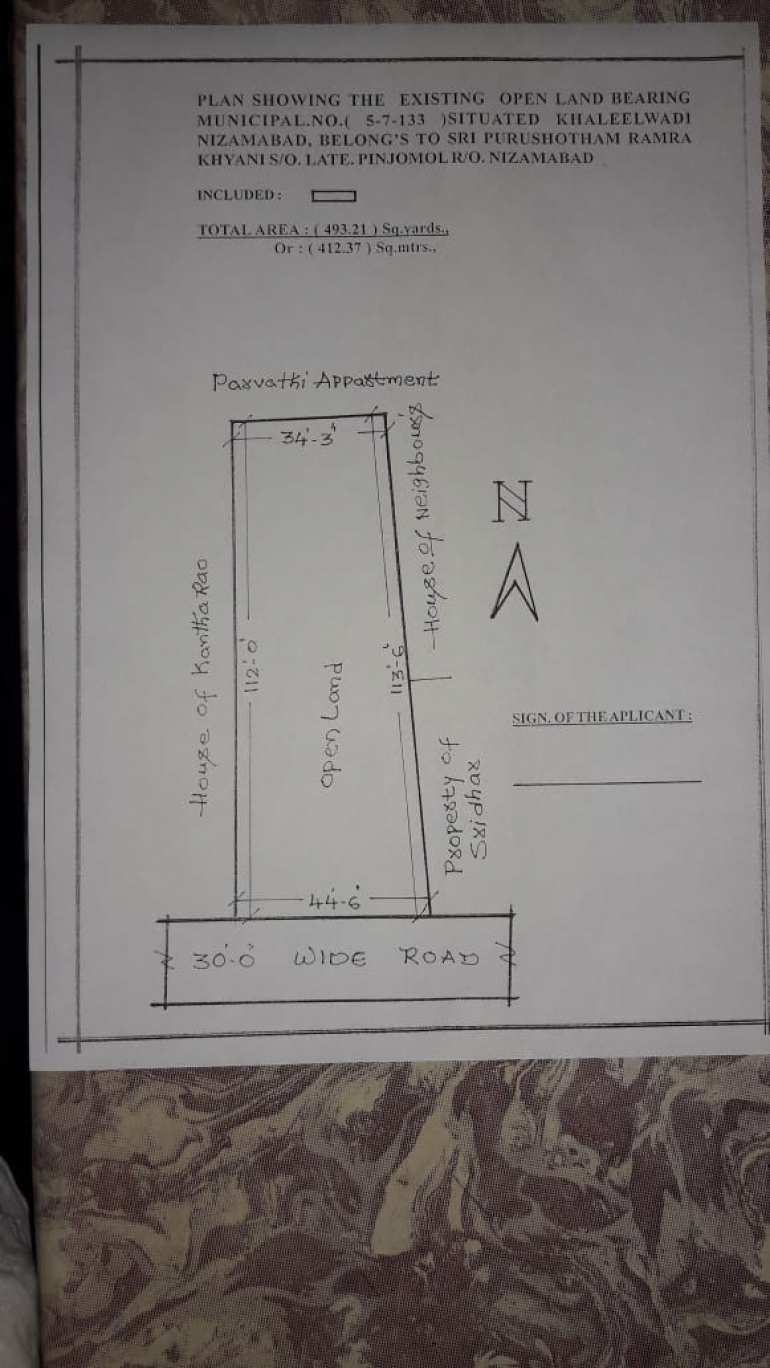 PLAN SHOWING THE EXISTING OPEN LAND BEARING
MUNICIPAL.NO.( 5-7-133 )SITUATED KHALEELWADI
NIZAMABAD, BELONG'S TO SRI PURUSHOTHAM RAMRA
KHYANI S/O. LATE. PINJOMOL R/O. NIZAMABAD
INCLUDED :
TOTAL AREA : ( 493.21 ) Sq.yards.,
Or : ( 412.37 ) Sq.mtrs.,
Parvathi Appartment
34'-3"
House of Neighbours
N
House of Kantha Rao
112'-0"
Open Land
113'-6"
SIGN. OF THE APLICANT :
Property of
Sridhar
44'-6"
30'-0" WIDE ROAD